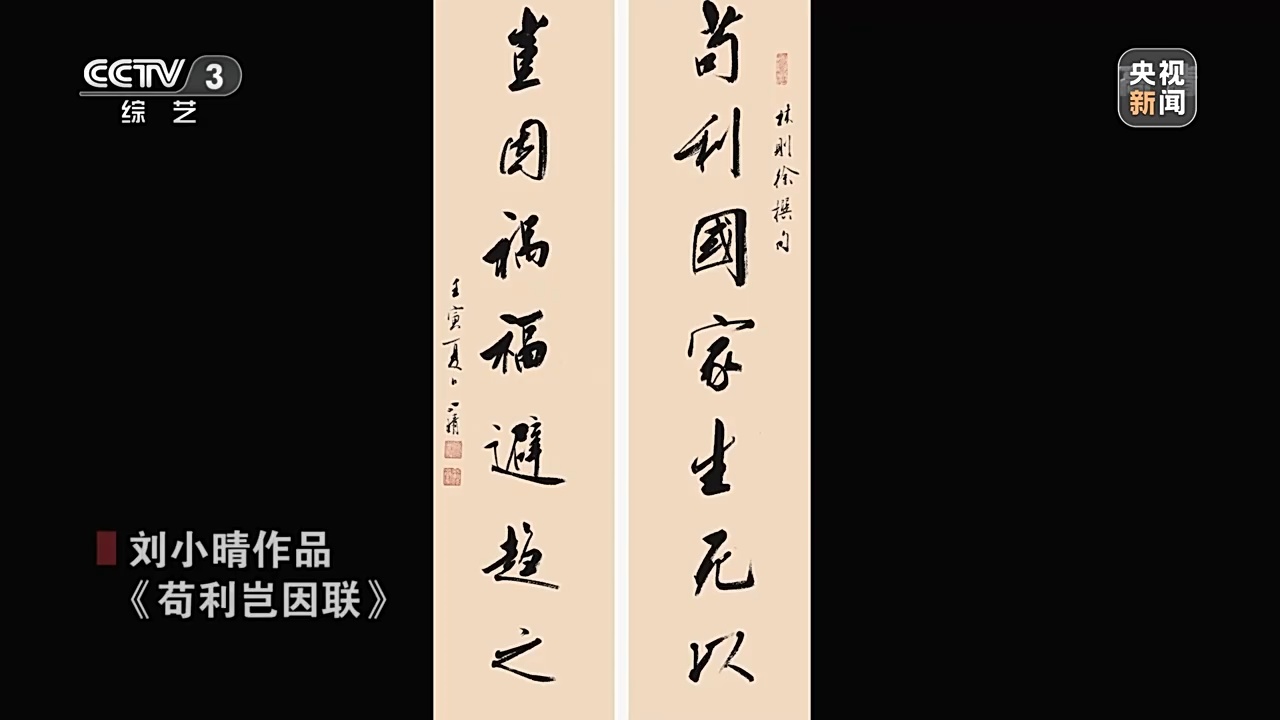 CCTV 3
综艺
央视
新闻
苟利國家生死以
林则徐撰句
豈因祸福避趋之
壬寅夏日小晴
刘小晴作品
《苟利岂因联》